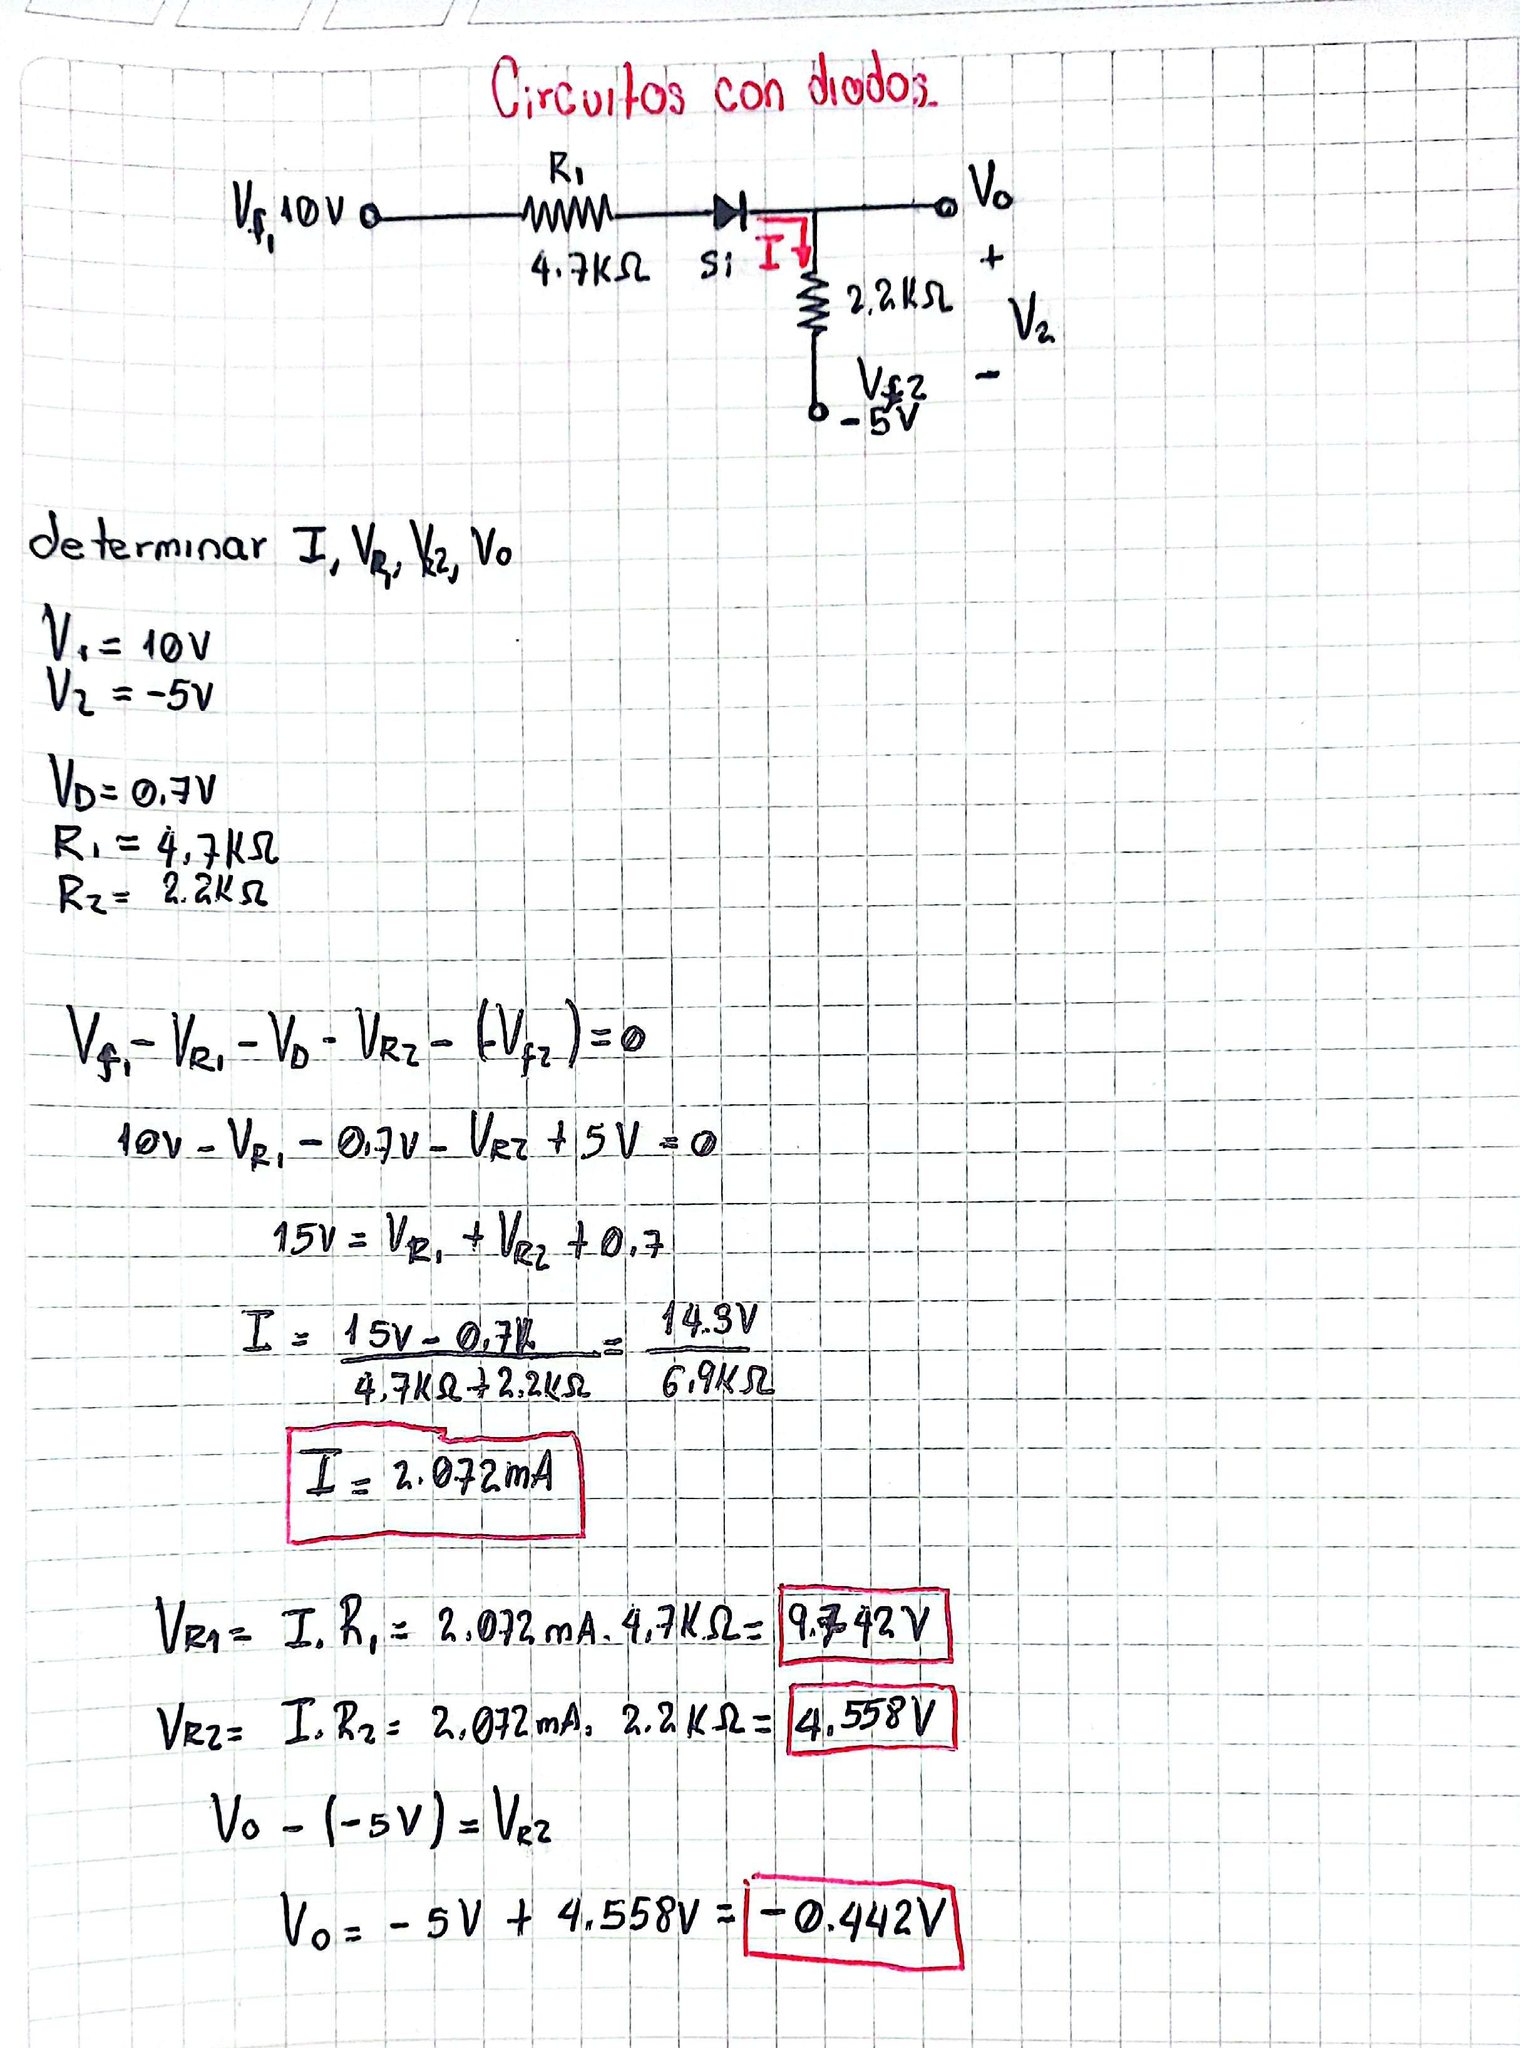 Circuitos con diodos.
R₁
Vf₁ 10V
V₀
4.7KΩ
Si
I
+
2.2KΩ
V₂
Vf2
-
-5V
determinar I, VR₁, VR2, V₀
V₁ = 10V
V₂ = -5V
VD = 0.7V
R₁ = 4,7KΩ
R₂ = 2.2KΩ
Vf₁ - VR₁ - VD - VR2 - (-Vf2) = 0
10V - VR₁ - 0.7V - VR2 + 5V = 0
15V = VR₁ + VR2 + 0.7
I = 15V - 0.7V / 4.7KΩ + 2.2KΩ = 14.3V / 6.9KΩ
I = 2.072mA
VR1 = I. R₁ = 2.072mA. 4,7KΩ = 9.742V
VR2 = I. R₂ = 2.072mA. 2.2KΩ = 4.558V
V₀ - (-5V) = VR2
V₀ = -5V + 4.558V = -0.442V